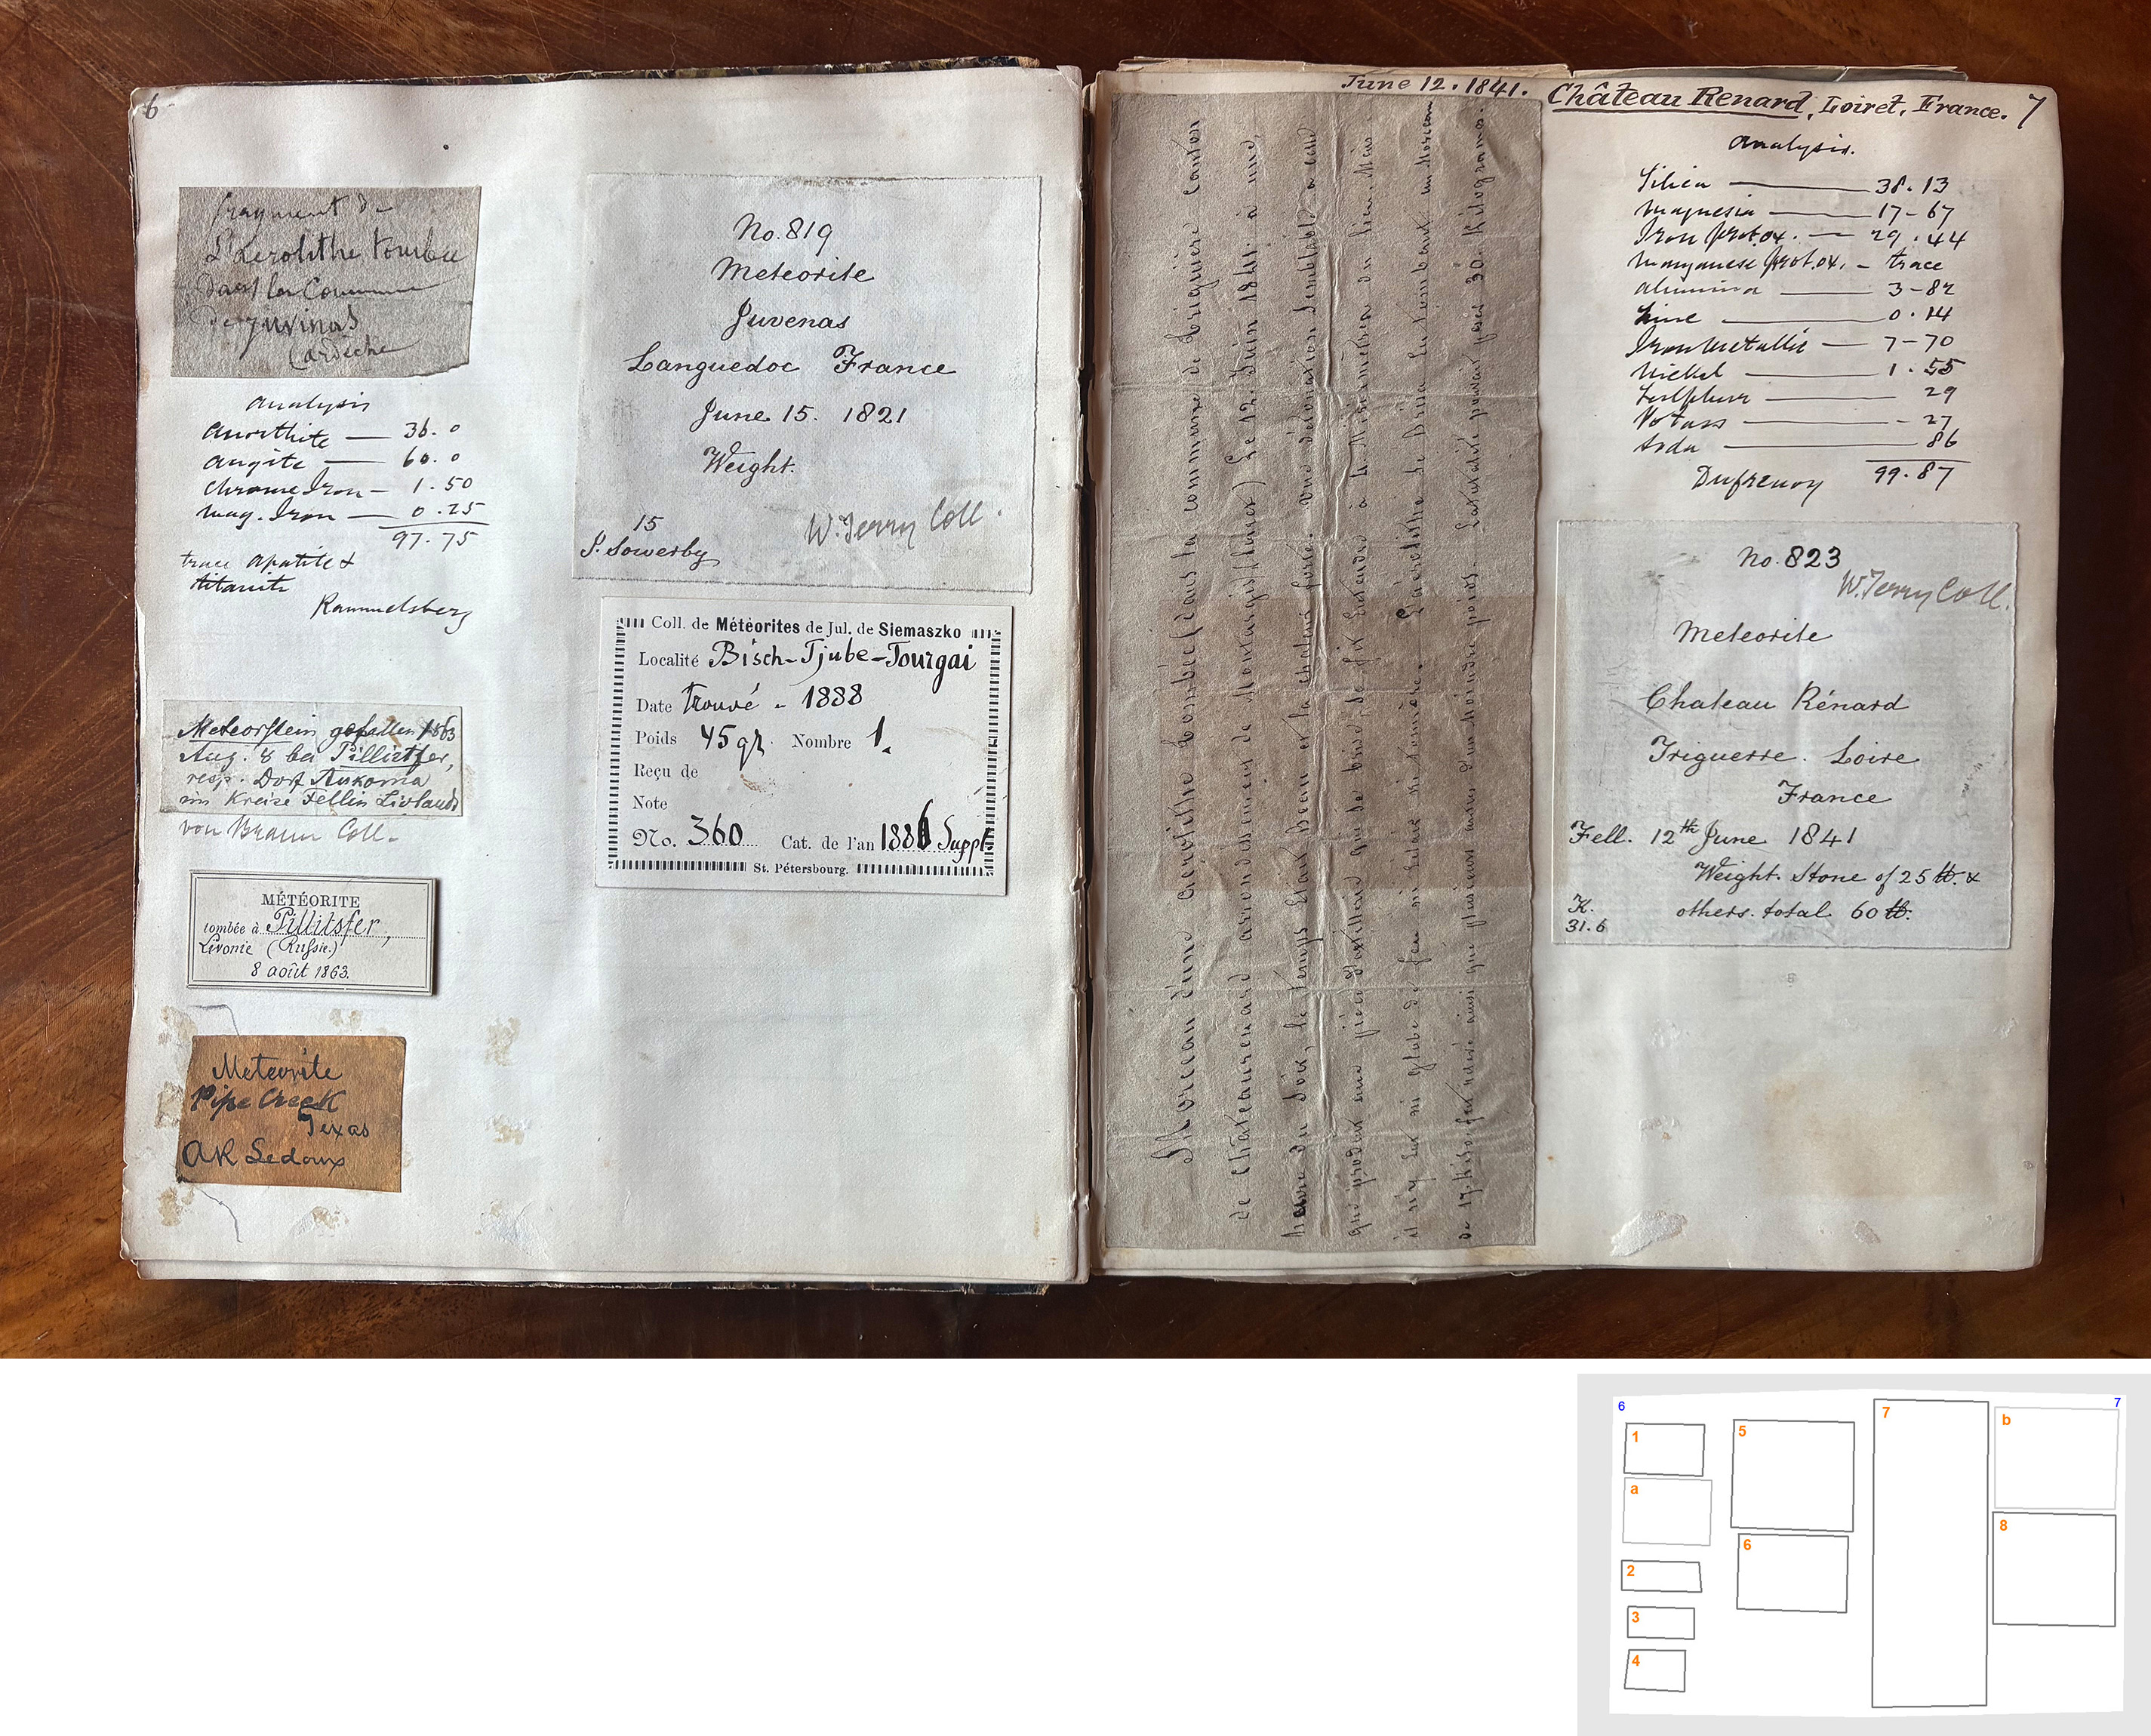 6
fragment de
L'aerolithe tombée
dans la Commune
de Juvinas
Cardèche
Analysis
Anorthite — 36.0
Augite — 60.0
Chrome Iron — 1.50
Mag. Iron — 0.25
97.75
trace Apatite &
titanite
Rammelsberg
Meteorstein gefallen 1863
Aug. 8 bei Pillistfer,
resp. Dorf Aukoma
im Kreise Fellin Livlands
von Braun Coll.
MÉTÉORITE
tombée à Pillitsfer,
Livonie (Russie.)
8 août 1863.
Meteorite
Pipe Creek
Texas
AR Ledoux
No. 819
Meteorite
Juvenas
Languedoc France
June 15. 1821
Weight.
15
S. Sowerby
W. Terry Coll.
Coll. de Météorites de Jul. de Siemaszko
Localité Bisch-Tjube-Tourgai
Date trouvé - 1888
Poids 45 gr. Nombre 1.
Reçu de
Note
No. 360 Cat. de l'an 1886 Suppl
St. Pétersbourg.
June 12. 1841. Château Renard, Loiret, France. 7
Morceau d'une Aérolithe tombée (dans la commune de Triguère Canton
de Châteaurenard arrondissement de Montargis (Loiret) Le 12 Juin 1841. à une
heure du soir, le temps étant Beau et la chaleur forte. une détonation semblable à celle
qui produit une pièce d'artillerie qui se brise, se fit entendre à le
il n'y eut ni globe de feu ni éclair ni tonnerre. L'aérolithe se brisa en tombant un Morceau
de 15 Kilos fut ainsi que plusieurs autres d'un moindre poids. La totalité pouvait peser 30 Kilogrames.
Analysis.
Silica — 38.13
Magnesia — 17-67
Iron prot.ox. — 29.44
Manganese prot.ox. — trace
Alumina — 3-82
Lime — 0.14
Iron Metallic — 7-70
Nickel — 1.55
Sulphur — 29
Potass — -27
Soda — 86
Dufrenoy 99.87
No. 823
W. Terry Coll.
Meteorite
Chateau Rénard
Triguerre. Loire
France
Fell. 12th June 1841
Weight. Stone of 25 lb. &
others. total 60 lb.
K.
31.6
6
7
1
a
2
3
4
5
6
7
b
8